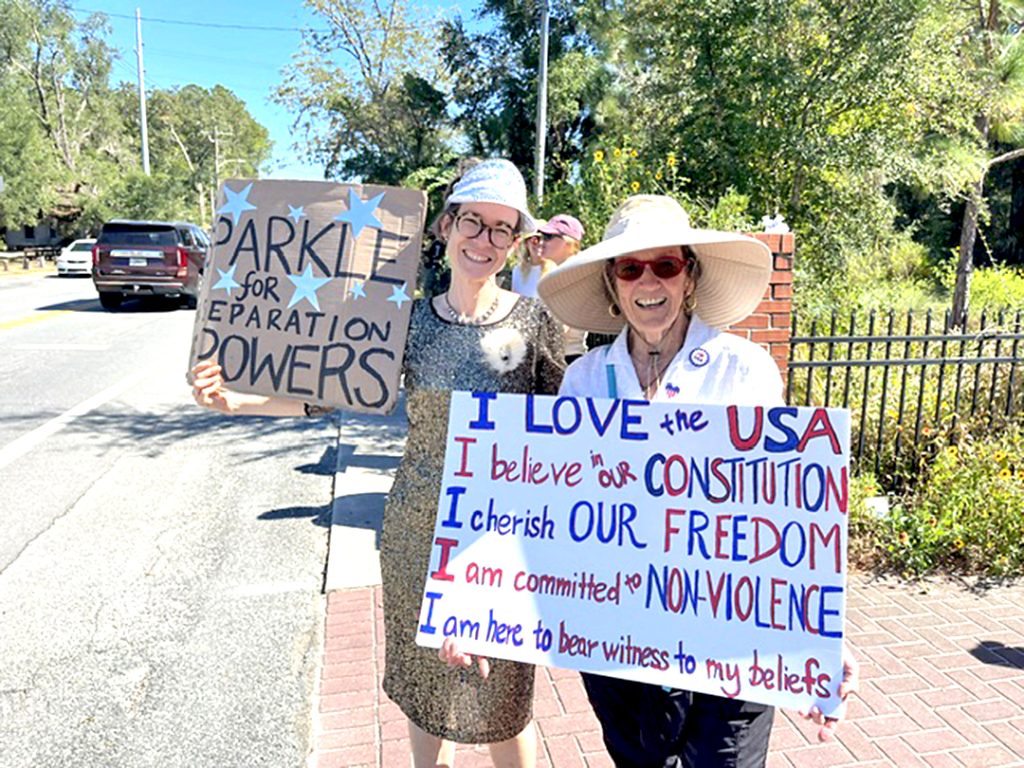 PARKLE
for
EPARATION
POWERS
I LOVE the USA
I believe in OUR CONSTITUTION
I cherish OUR FREEDOM
I am committed to NON-VIOLENCE
I am here to bear witness to my beliefs